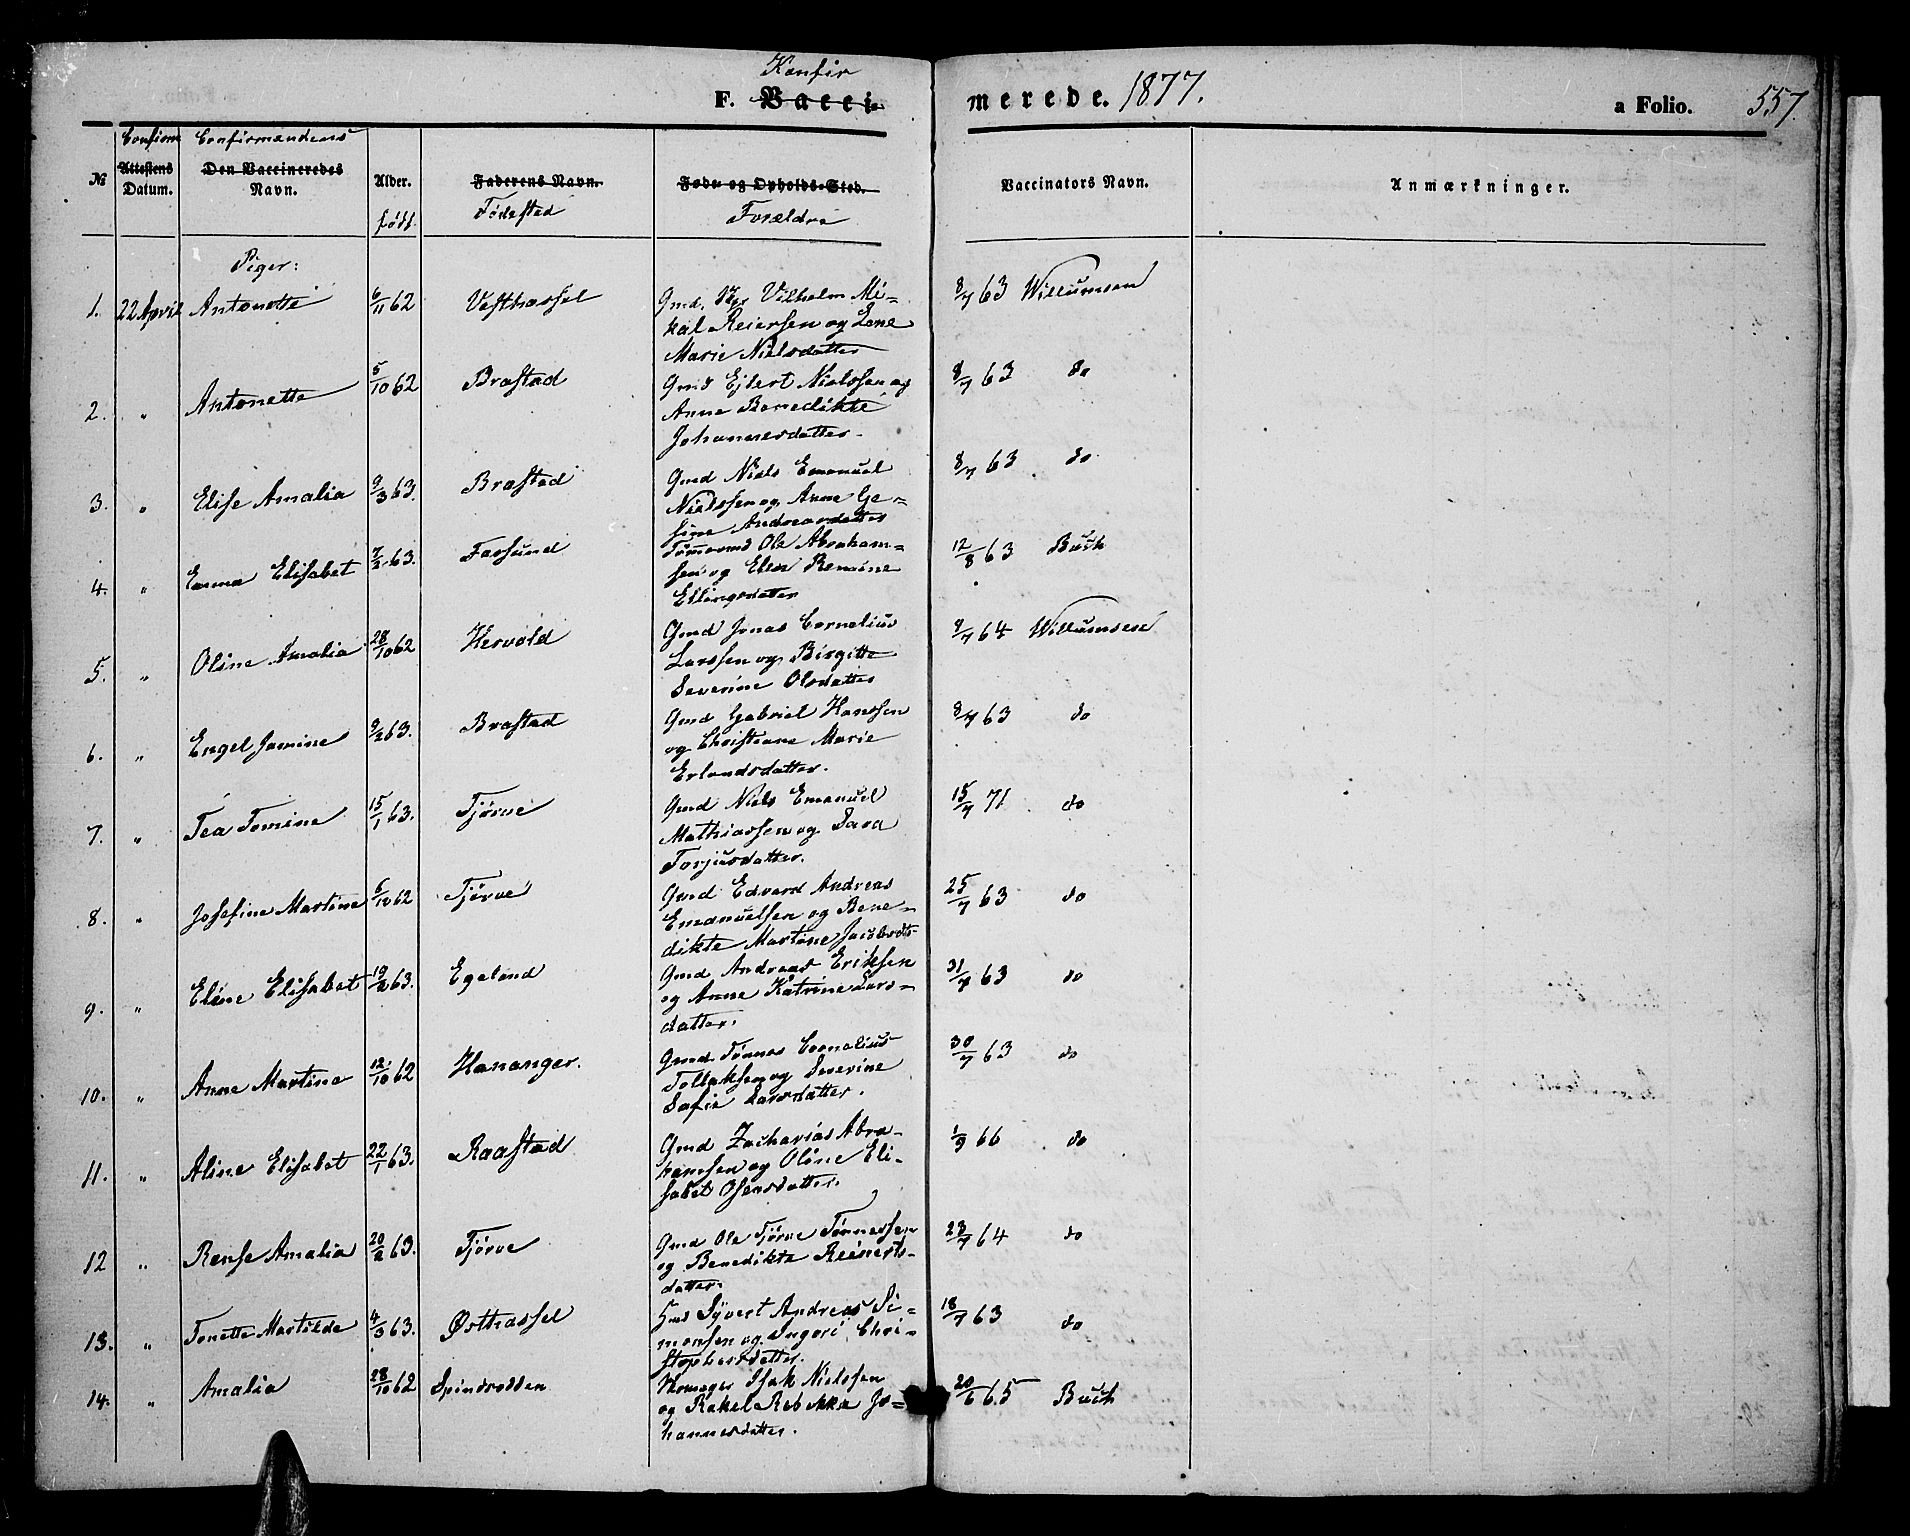 Konfir
F. Vacci- merede. 1877. a Folio. 557.
Confirm Confirmandens
№ Attestens Datum. Den Vaccineredes Navn. Alder. Faderens Navn. Føde- og Opholds-Sted. Vaccinators Navn. Anmærkninger.
født. Fødested Forældre
Piger:
1. 22 April Antonette 6/11 62 Vesthassel Gmd. Vilhelm Mi- 8/7 63 Willumsen
kal Reiersen og Lene
Marie Nielsdatter
2. " Antonette 5/10 62 Brastad Gmd Ejlert Nielssen og 8/7 63 do
Anne Benedikte
Johannesdatter.
3. " Elise Amalia 9/3 63. Brastad Gmd Niels Emanuel 8/7 63 do
Nielssen og Anne Ge-
sine Andreasdatter
4. " Emma Elisabet 7/2 63. Farsund Tømermd Ole Abraham- 12/8 63 Buch
sen og Elen Remine
Ellingsdatter
5. " Oline Amalia 28/10 62 Hervold Gmd Jonas Cornelius 9/7 64 Willumsen
Larssen og Birgitte
Severine Olsdatter
6. " Engel Jamine 9/2 63. Brastad Gmd Gabriel Hanssen 8/7 63 do
og Christiane Marie
Erlandsdatter.
7. " Tea Tomine 15/1 63. Tjørve Gmd Niels Emanuel 15/7 71 do
Mathiassen og Sara
Torjusdatter.
8. " Josefine Martine 6/12 62 Tjørve Gmd Edvard Andreas 25/7 63 do
Emanuelsen og Bene-
dikte Martine Jacobsdtr
9. " Eline Elisabet 19/2 63. Egeland Gmd Andreas Eriksen 31/7 63 do
og Anne Katrine Lars-
datter.
10. " Anne Martine 12/10 62 Hananger. Gmd. Tønnes Cornelius 30/7 63 do
Tollaksen og Severine
Sofie Larsdatter.
11. " Aline Elisabet 22/1 63. Raastad Gmd Zacharias Abra- 1/9 66 do
hamsen og Oline Eli-
sabet Osensdatter.
12 " Rense Amalia 20/2 63. Tjørve Gmd Ole Tjørve Tønnessen 23/7 64 do
og Benedikte Reinerts-
datter.
13. " Tonette Martilde 4/3 63. Østhassel Hmd Syvert Andreas Si- 18/7 63 do
monsen og Ingeri Chri-
stophersdatter.
14. " Amalia 28/10 62 Spindsodden Skomager Isak Nielssen 20/6 65 Buch
og Rakel Rebekka Jo-
hannesdatter.